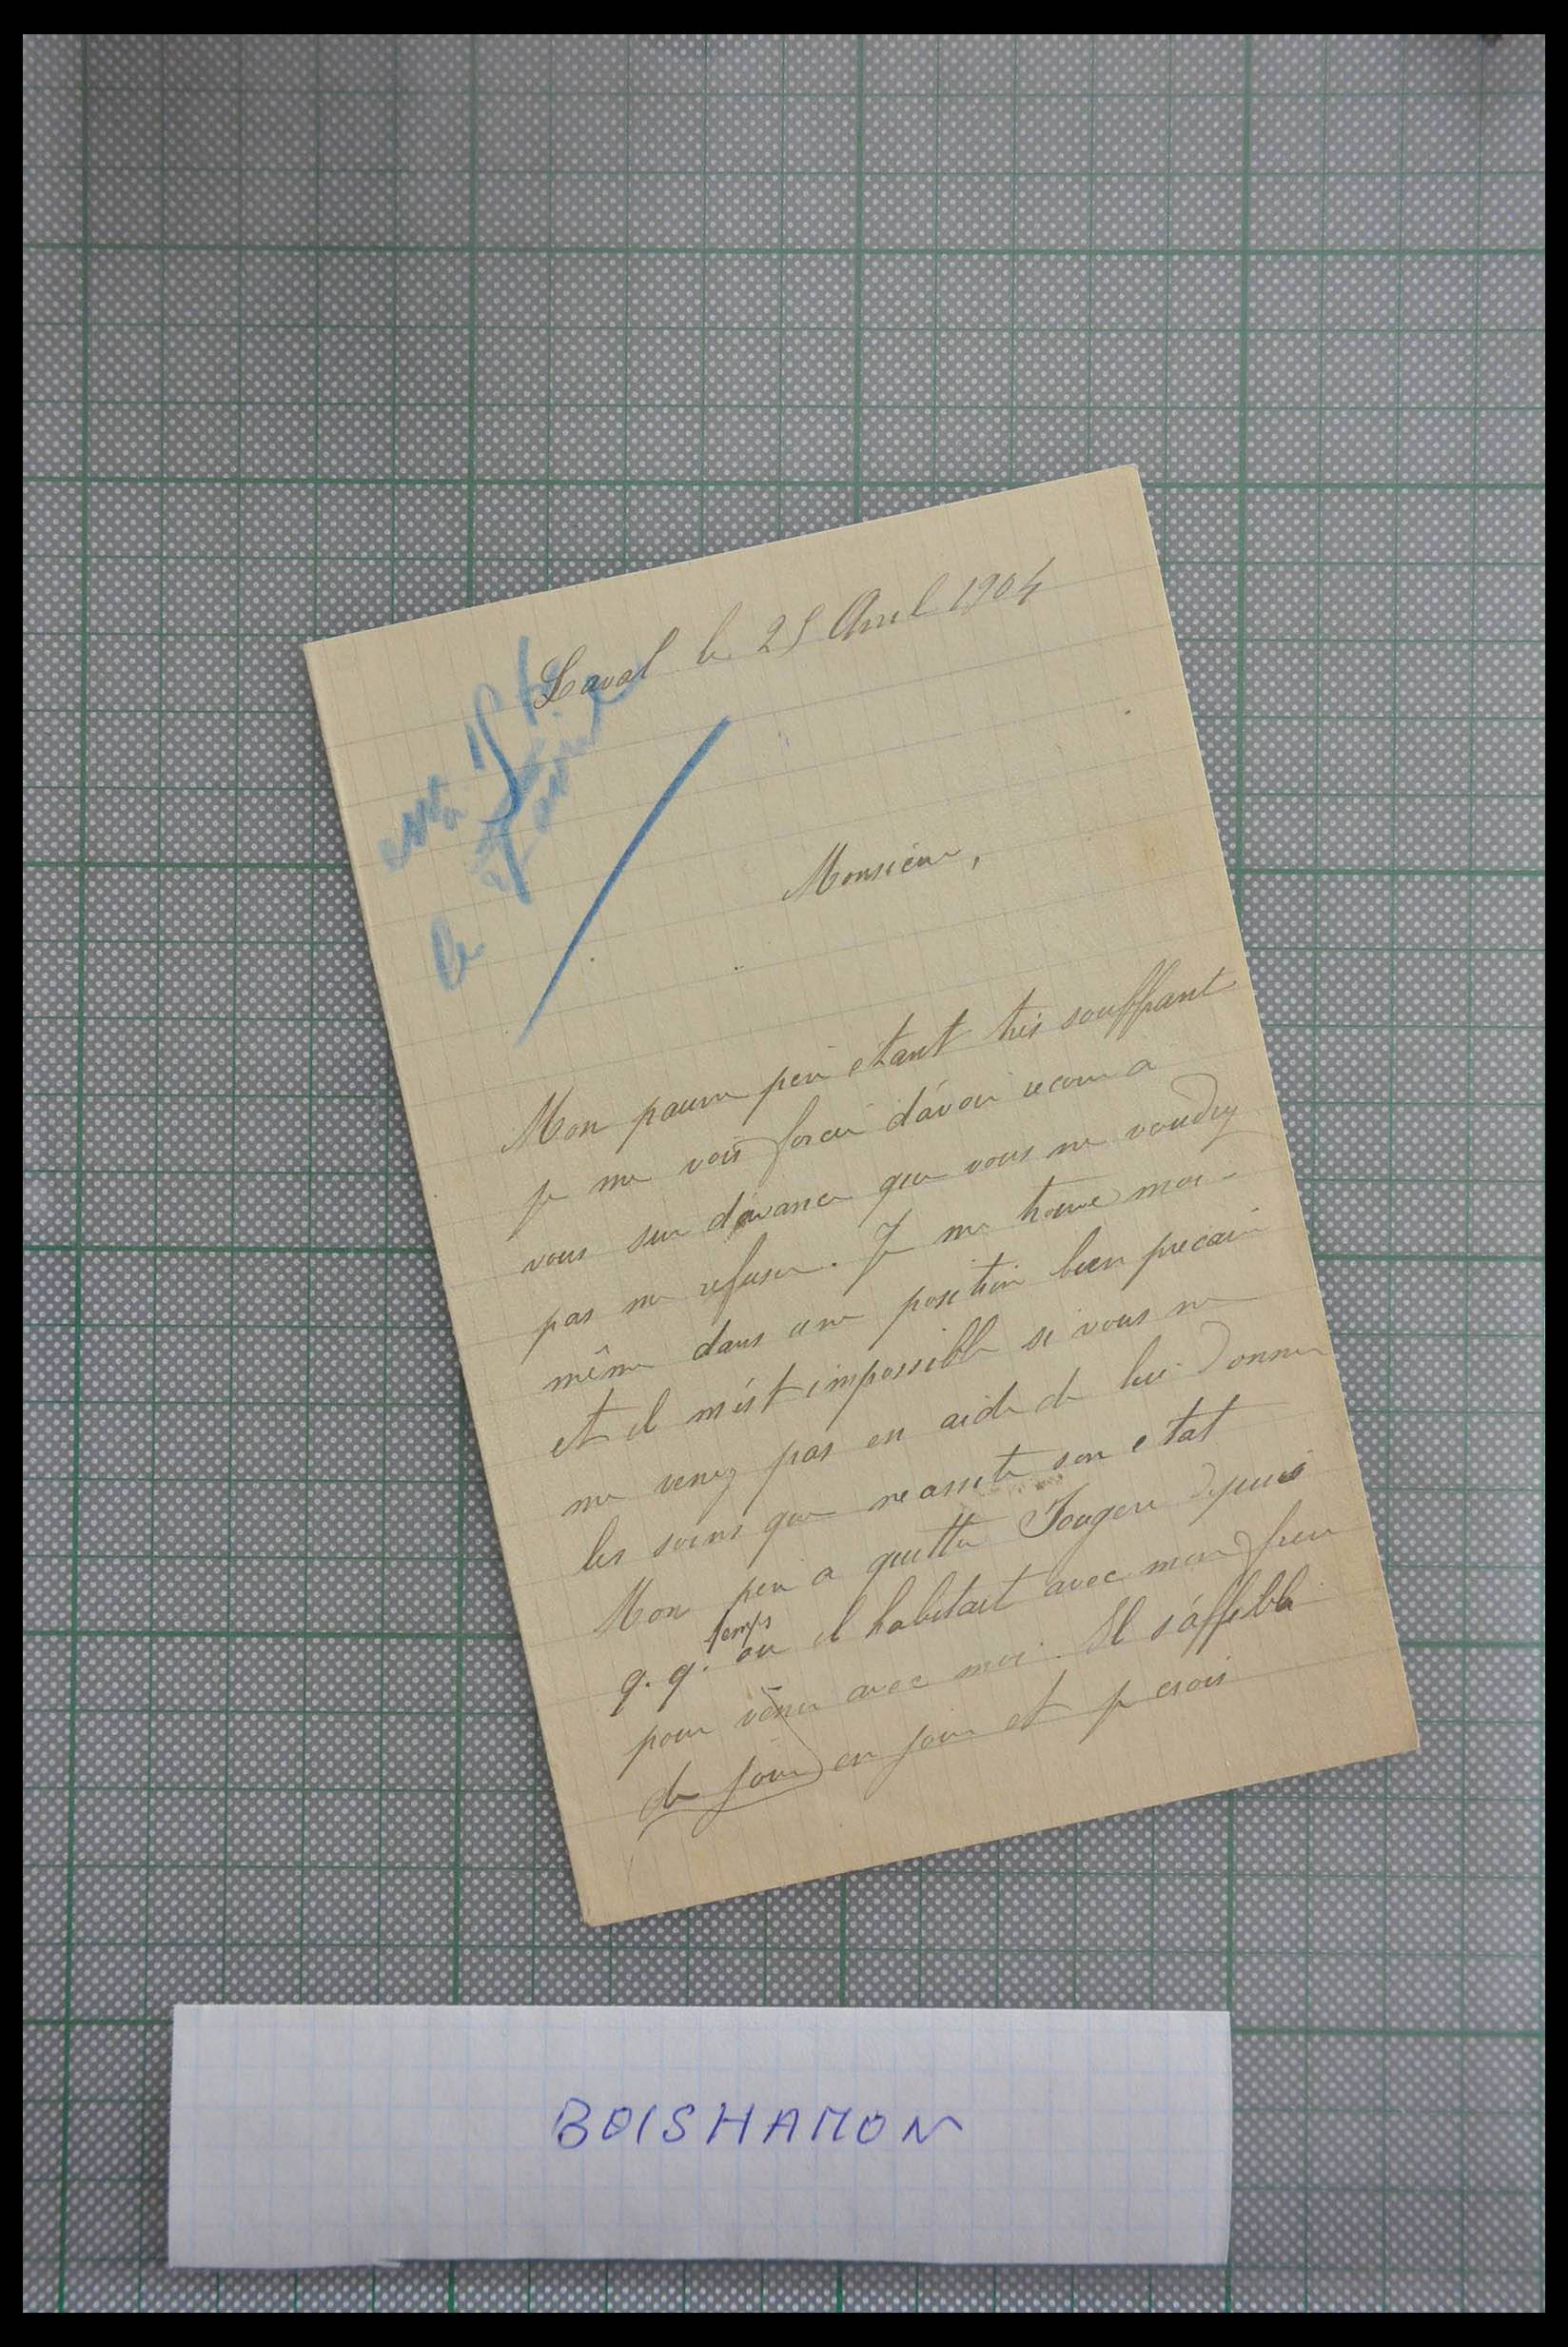 Laval le 25 Avril 1904
le
Monsieur,
Mon pauvre père etant très souffrant
je me vois forcée d'avoir recour a
vous sur d'avance que vous ne voudrez
pas me refuser. Je me trouve moi-
même dans une position bien precaire
et il m'est impossible si vous ne
me venez pas en aide de lui donner
les soins que necessite son etat
Mon père a quitté Fougere depuis
q. q. temps ou il habitait avec mon frere
pour venir avec moi. Il s'affeblli
de jour en jour et je crois
BOISHAMON